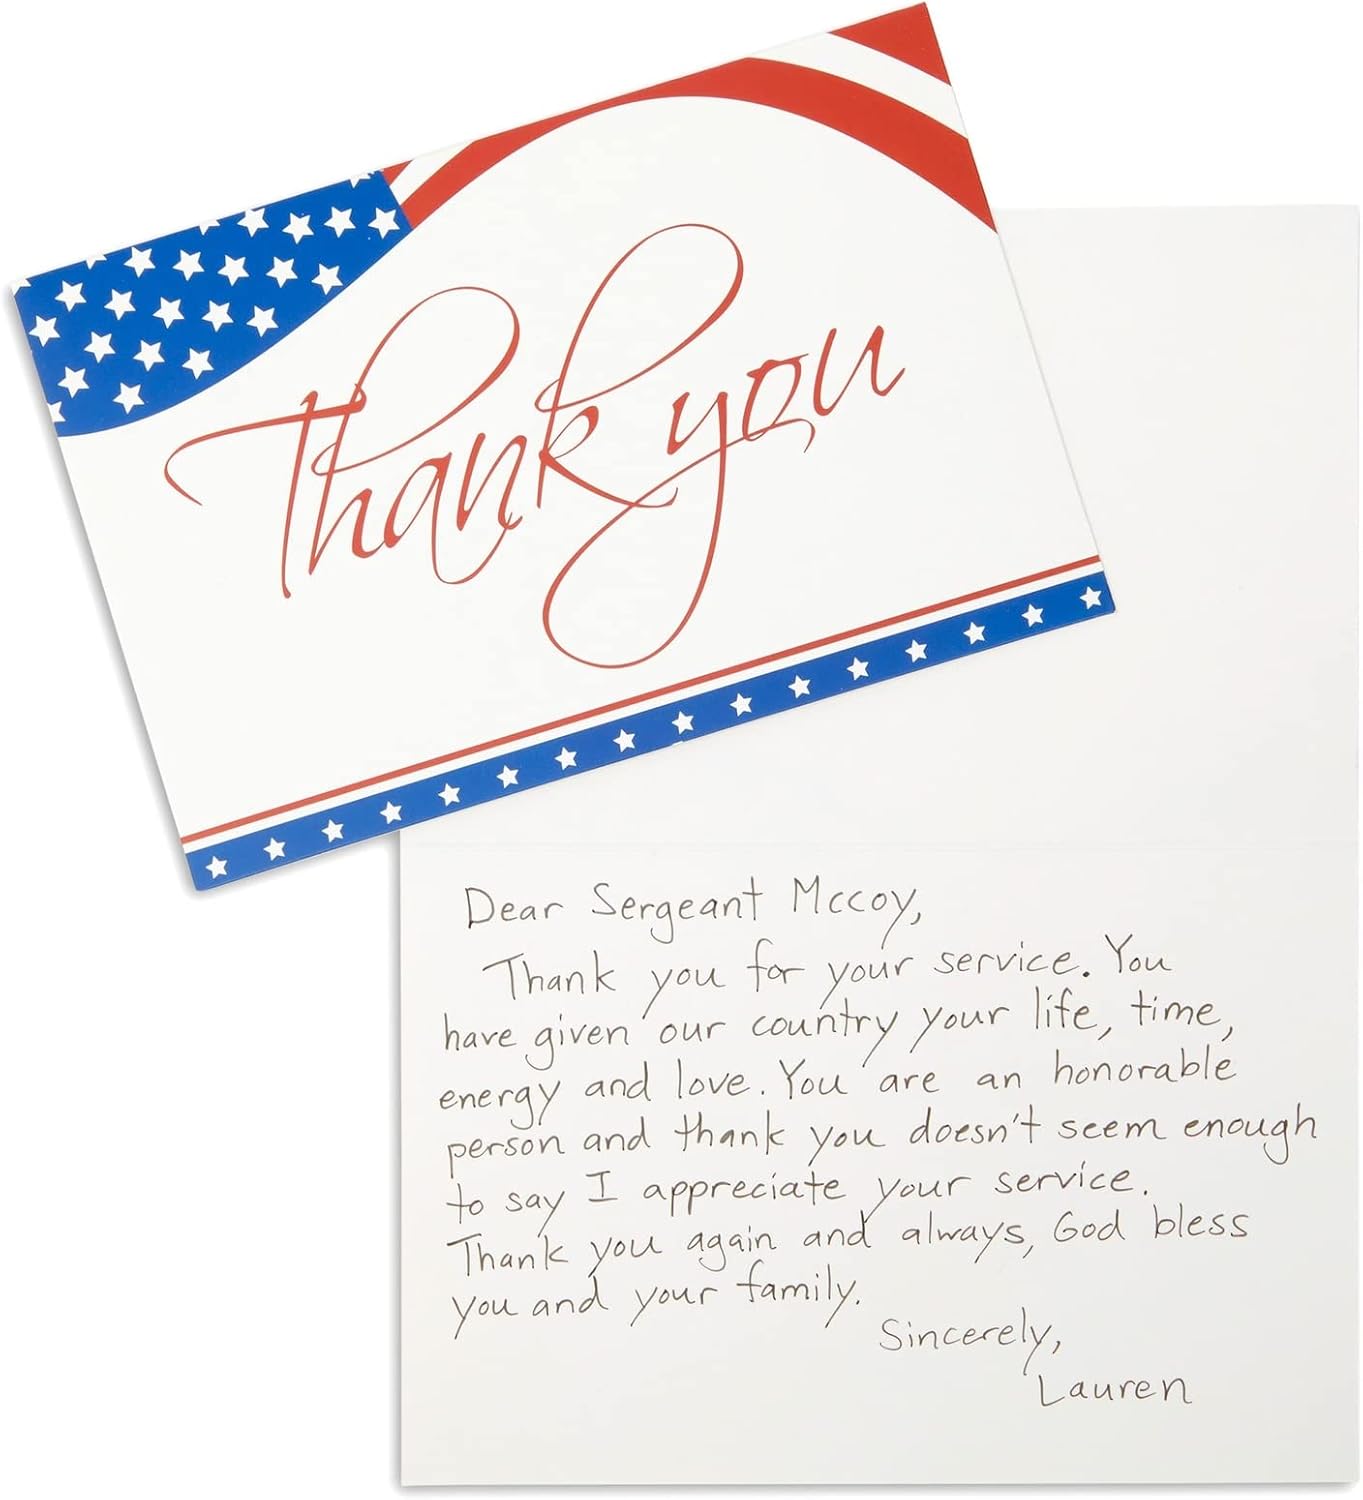 Thank you
Dear Sergeant Mccoy,
Thank you for your service. You
have given our country your life, time,
energy and love. You are an honorable
person and thank you doesn't seem enough
to say I appreciate your service.
Thank you again and always, God bless
you and your family.
Sincerely,
Lauren